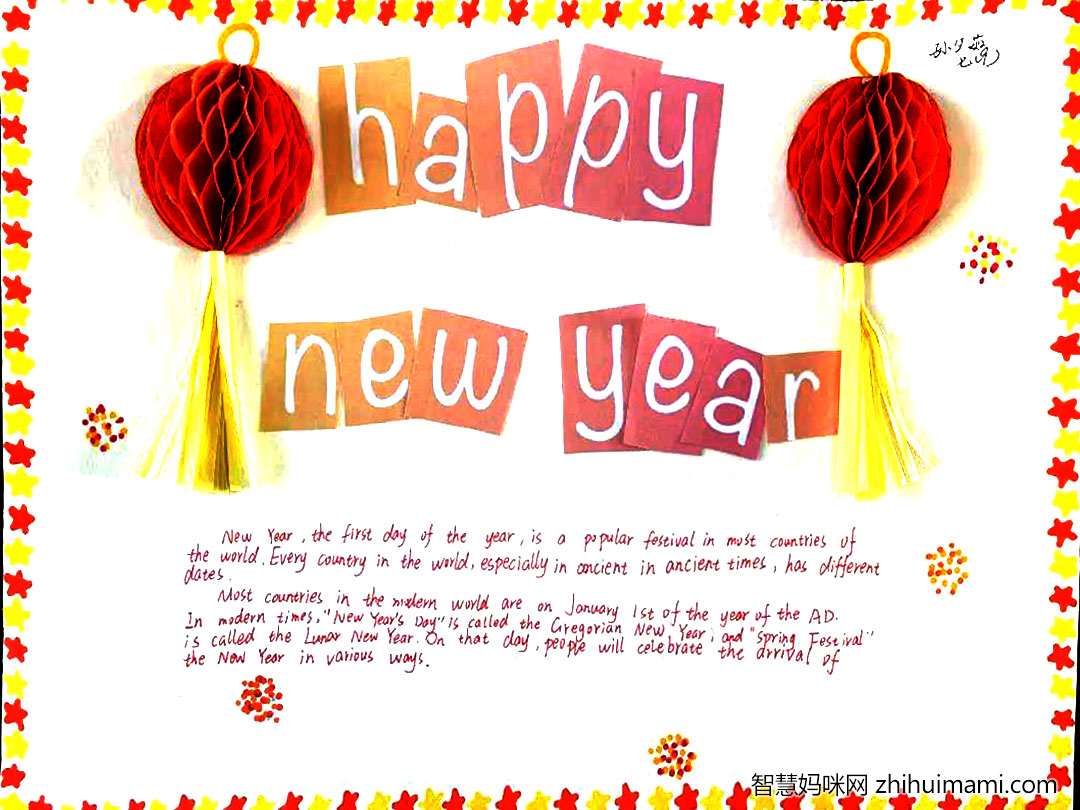 孙夕茹
七(9)
happy
new year
New Year, the first day of the year, is a popular festival in most countries of
the world. Every country in the world, especially in ancient in ancient times, has different
dates.
Most countries in the modern world are on January 1st of the year of the AD.
In modern times, "New Year's Day" is called the Gregorian New Year, and "Spring Festival"
is called the Lunar New Year. On that day, people will celebrate the arrival of
the New Year in various ways.
智慧妈咪网 zhihuimami.com